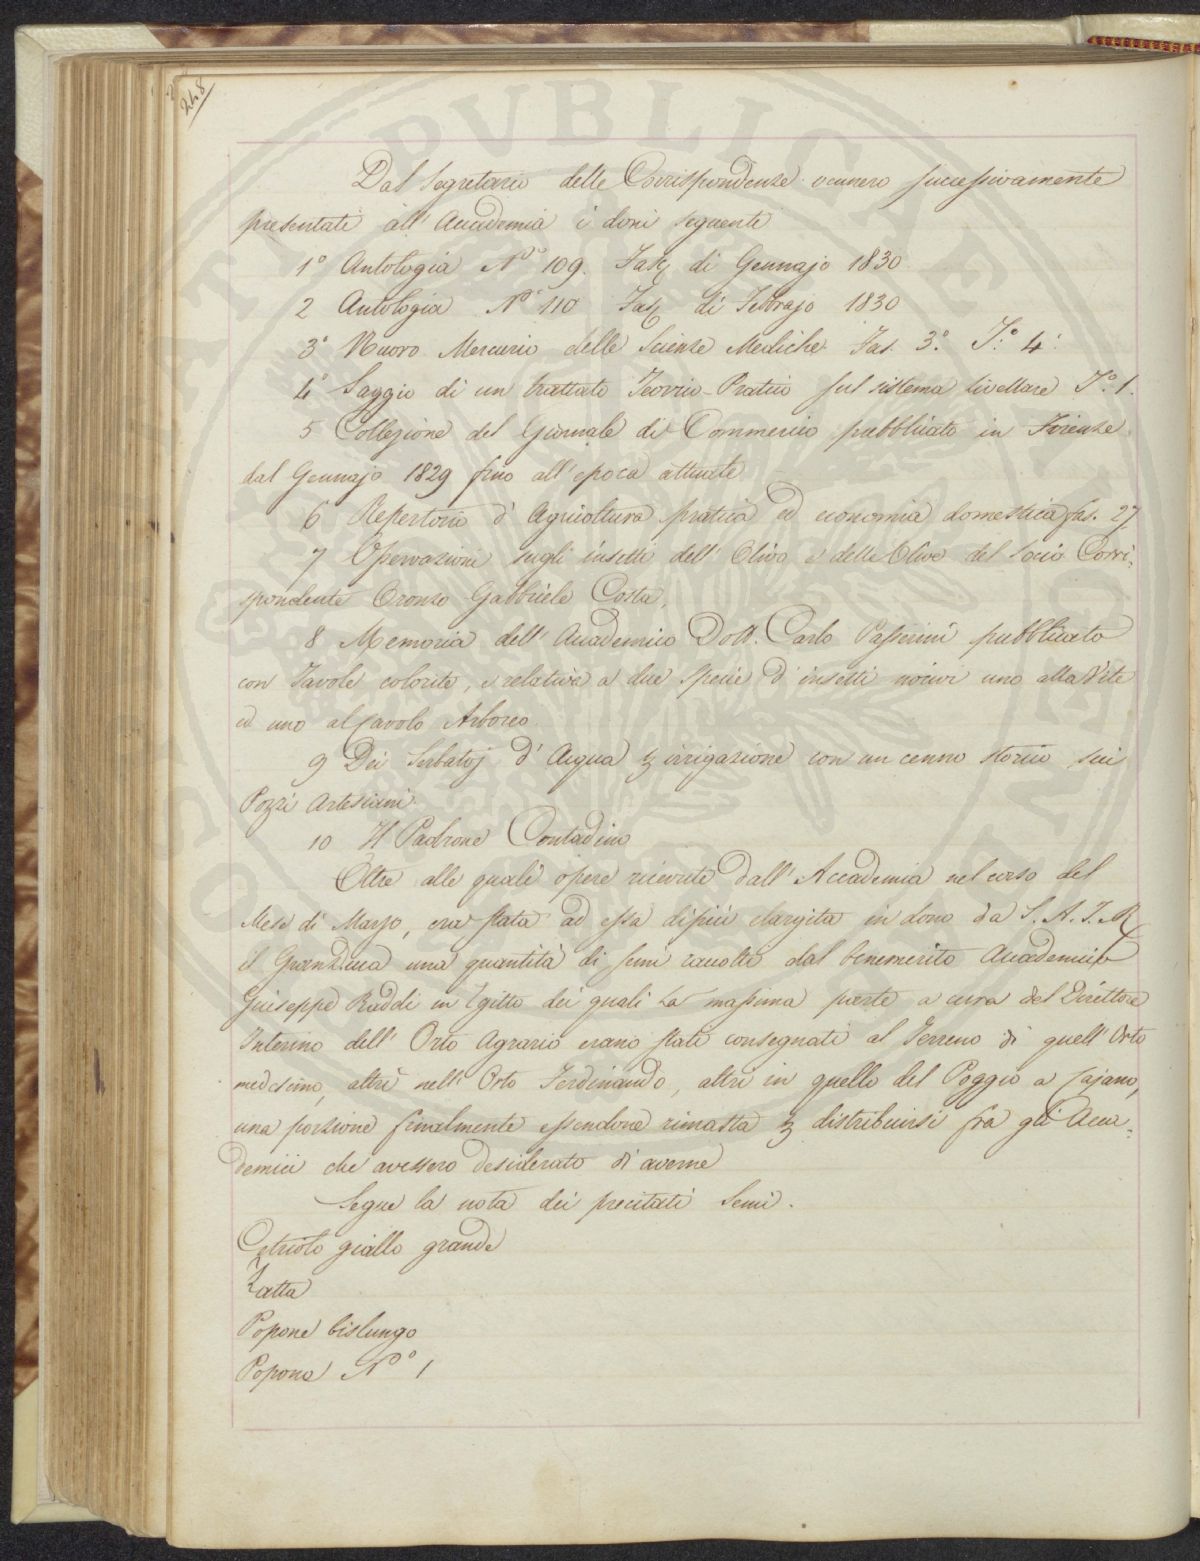 248
Dal Segretario delle Corrispondenze vennero successivamente
presentati all' Accademia i doni seguenti
1º Antologia Nº 109. Fasc. di Gennajo 1830
2 Antologia Nº 110 Fasc. di Febbrajo 1830
3º Nuovo Mercurio delle Scienze Mediche Fas. 3.º T.º 4.
4º Saggio di un trattato Teorico-Pratico sul sistema livellare T.º 1.
5 Collezione del Giornale di Commercio pubblicato in Firenze
dal Gennajo 1829 fino all' epoca attuale
6 Repertorio d' Agricoltura pratica ed economia domestica fas. 27.
7 Osservazioni sugli insetti dell' Olivo e delle Olive del Socio Corri=
spondente Oronzo Gabbriele Costa,
8 Memoria dell' Accademico Dott. Carlo Passerini pubblicata
con Tavole colorite, e relativa a due specie d' insetti nocivi uno alla Vite
ed uno al Cavolo Arboreo.
9 Dei Serbatoj d' Acqua p irrigazione con un cenno storico sui
Pozzi Artesiani.
10 Il Padrone Contadino
Oltre alle quali opere ricevute dall' Accademia nel corso del
Mese di Marzo, era stata ad essa dipiù elargita in dono da S. A. I. R.
il Granduca una quantità di semi raccolti dal benemerito Accademico
Giuseppe Raddi in Egitto dei quali la massima parte a cura del Direttore
Interino dell' Orto Agrario erano stati consegnati al Terreno di quell' Orto
medesimo, altri nell' Orto Ferdinando, altri in quello del Poggio a Cajano,
una porzione finalmente essendone rimasta p distribuirsi fra gli Acca=
demici che avessero desiderato di averne
Segue la nota dei precitati Semi.
Cetriolo giallo grande
Zatta
Popone bislungo
Popone Nº 1